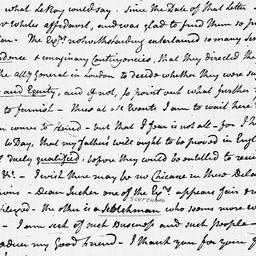 what LeRoy would say. Since the Date of that Letter
Whales affadavit, and was glad to find them so
The Exrs. notwithstanding entertained so many
& imaginary Contingencies, that they directed the
the Atty General in London to decide whether they were
and Equity, and if not, to point out what further
to furnish - thus at all Events I am to wait here
comes to Hand - but that I fear is not all - for I
to Day, that my father's will ought to be proved in Engl
duly qualified, before they would be entitled to
&c! - I wish there may be no Chicane in these Dela
Dean Tucker one of the Exrs. appears fair &
the other is a Scotchman who seems more
SCOTCHMAN
I am sick of such Business and such people -
my good Friend - I thank you for your